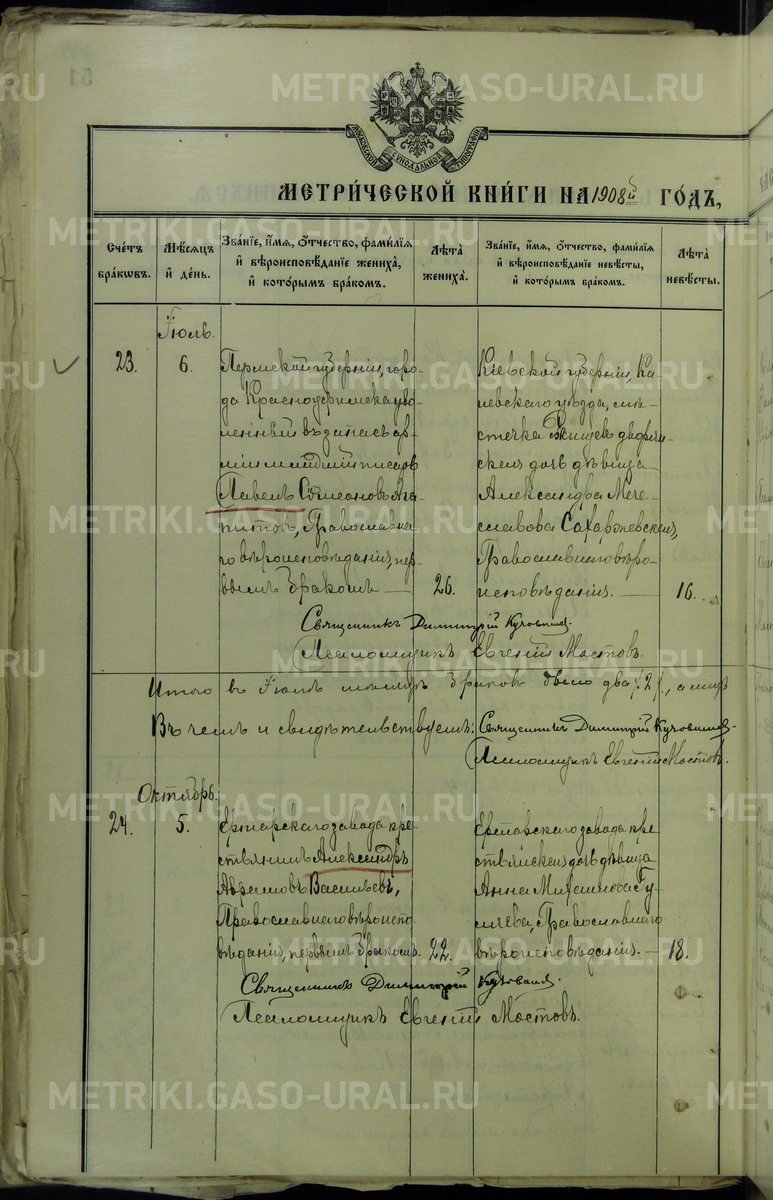 МОСКОВСКОЙ СѴНОДАЛЬНОЙ ТИПОГРАФІИ
МЕТРИ́ЧЕСКОЙ КНИ́ГИ НА 1908й ГО́ДЪ,
Сче́тъ бра́кѡвъ.
Мѣ́сѧцъ и҆ де́нь.
Зва́нїе, и҆́мѧ, ѻ҆́тчество, фами́лїѧ и҆ вѣроисповѣ́данїе жениха̀, и҆ кото́рымъ бра́комъ.
Лѣ́та жениха̀.
Зва́нїе, и҆́мѧ, ѻ҆́тчество, фами́лїѧ и҆ вѣроисповѣ́данїе невѣ́сты, и҆ кото́рымъ бра́комъ.
Лѣ́та невѣ́сты.
Іюль.
23.
6.
Пермской губерніи, горо-
да Красноуфимска уво-
ленный въ запасъ ар-
міи младшій писарь
Павелъ Симеоновъ Ага-
питовъ, Православна-
го вѣроисповѣданія, пер-
вымъ бракомъ
26.
Кіевской губерніи, Ка-
невскаго уѣзда, мѣ-
стечка дворян-
ская дочь дѣвица
Александра Мече-
славова Сахаржевская,
Православнаго вѣро-
исповѣданія.
16.
Священникъ Димитрій
Псаломщикъ Евгеній Мостовъ.
Итого въ Іюлѣ мѣсяцѣ браковъ было два /2/, а
Въ чемъ и свидѣтельствуемъ: Священникъ Димитрій
Псаломщикъ Евгеній Мостовъ.
Октябрь.
24.
5.
Ертарскаго завода кре-
стьянинъ Александръ
Абрамовъ Васильевъ,
Православнаго вѣроиспо-
вѣданія, первымъ бракомъ.
22.
Ертарскаго завода кре
стьянская дочь дѣвица
Анна Гу-
ляева, Православнаго
вѣроисповѣданія.
18.
Священникъ Димитрій
Псаломщикъ Евгеній Мостовъ.
METRIKI.GASO-URAL.RU